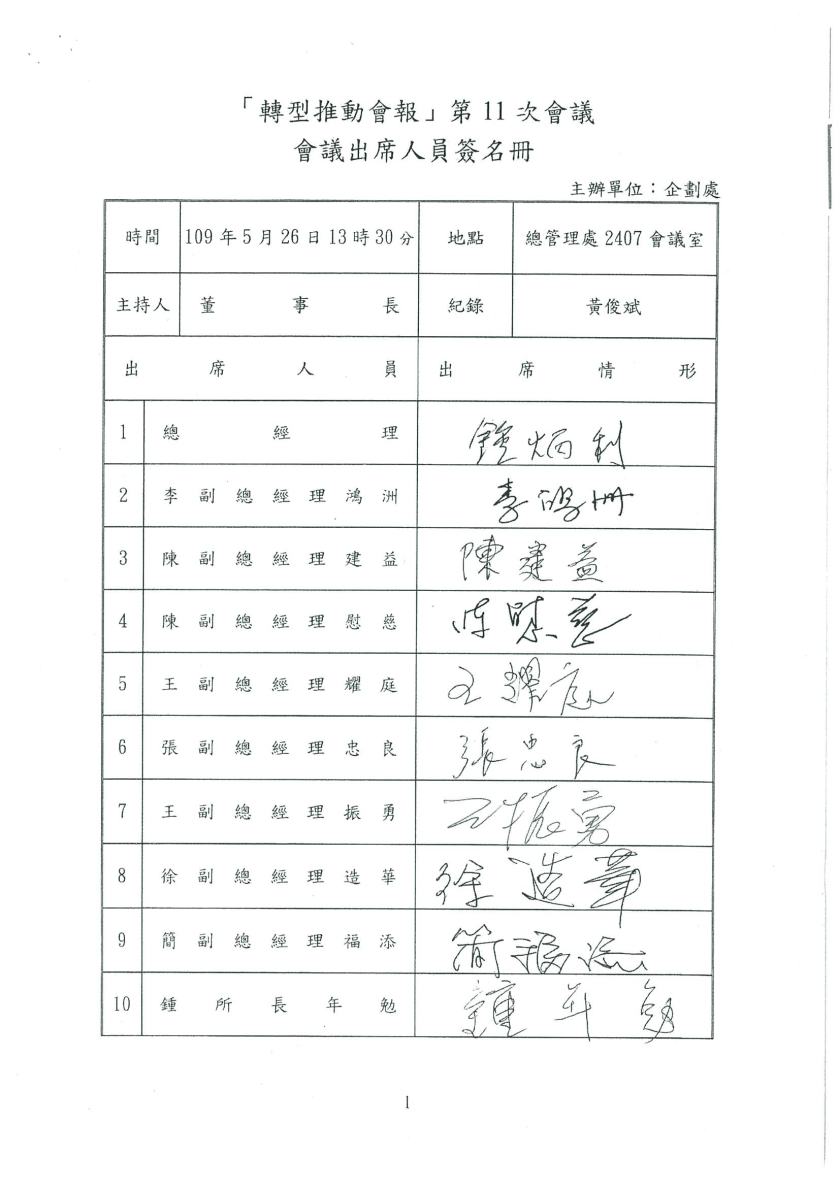 「轉型推動會報」第 11 次會議
會議出席人員簽名冊
主辦單位：企劃處
時間 109 年 5 月 26 日 13 時 30 分 地點 總管理處 2407 會議室
主持人 董事長 紀錄 黃俊斌
出席人員 出席情形
1 總經理 鍾炳利
2 李副總經理鴻洲 李鴻洲
3 陳副總經理建益 陳建益
4 陳副總經理慰慈 陳慰慈
5 王副總經理耀庭 王耀庭
6 張副總經理忠良 張忠良
7 王副總經理振勇 王振勇
8 徐副總經理造華 徐造華
9 簡副總經理福添 簡福添
10 鍾所長年勉 鍾年勉
1